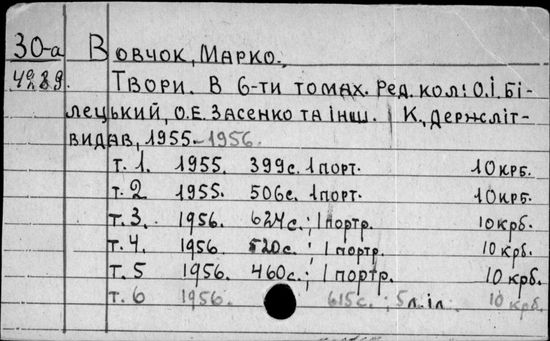 30-а Вовчок, Марко.
Твори. В 6-ти томах. Ред. кол: О.І. Бі-
лецький, О.Е. Засенко та інш. К, Держліт-
видав, 1955-1956.
т. 1. 1955. 399с. 1 порт. 10 крб.
т. 2 1955. 506с. 1 порт. 10 крб.
т. 3. 1956. 624с.; 1 портр. 10 крб.
т. 4. 1956. 520с.; 1 портр. 10 крб.
т. 5 1956. 460с.; 1 портр. 10 крб.
т. 6 1956. 615с.; 5 л. іл. 10 крб.